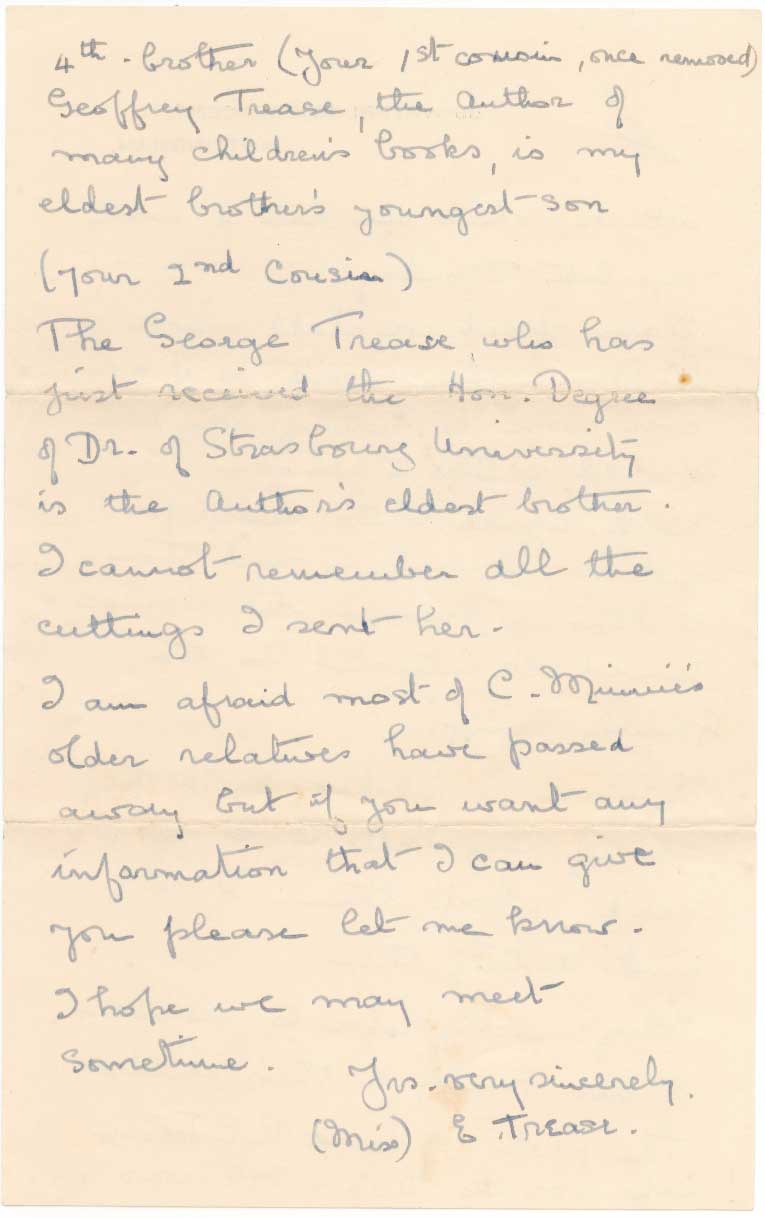 4th. brother (Your 1st cousin, once removed)
Geoffrey Trease, the Author of
many children's books, is my
eldest brother's youngest son
(your 2nd Cousin)
The George Trease, who has
just received the Hon. Degree
of Dr. of Strasbourg University
is the Author's eldest brother.
I cannot remember all the
cuttings I sent her.
I am afraid most of C. Minnie's
older relatives have passed
away but if you want any
information that I can give
you please let me know.
I hope we may meet
sometime.
Yrs. very sincerely,
(Miss) E. Trease.